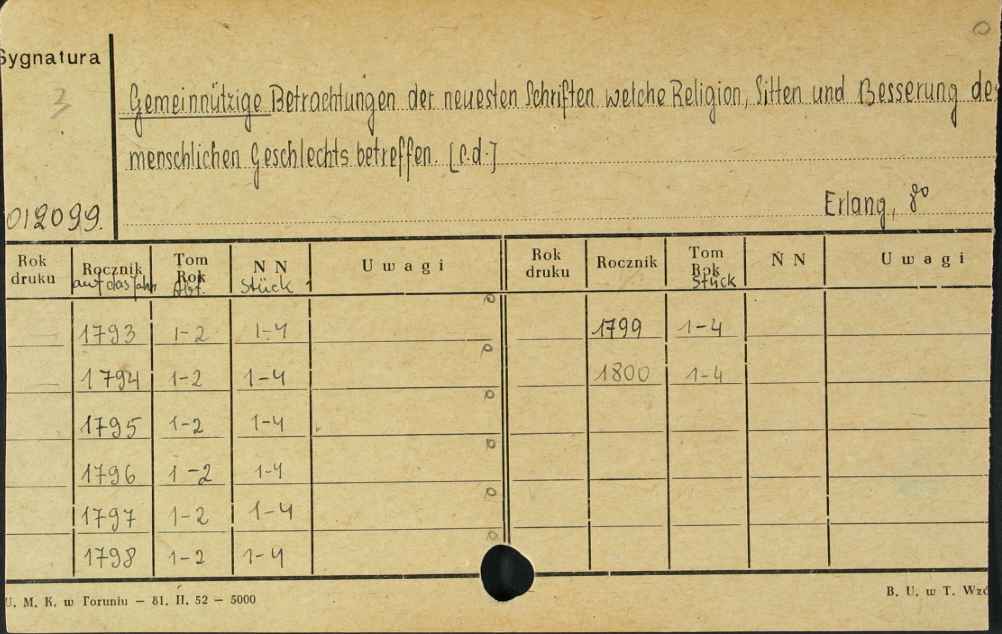 Sygnatura
3
Gemeinnützige Betrachtungen der neuesten Schriften welche Religion, Sitten und Besserung de
menschlichen Geschlechts betreffen. [c.d.]
012099.
Erlang, 8o
Rok druku Rocznik auf das Jahr Tom Rok Abt. N N Stück U w a g i Rok druku Rocznik Tom Rok Stück N N U w a g i
1793 1-2 1-4 1799 1-4
1794 1-2 1-4 1800 1-4
1795 1-2 1-4
1796 1-2 1-4
1797 1-2 1-4
1798 1-2 1-4
U. M. K. w Toruniu — 81. II. 52 — 5000 B. U. w T. Wzó